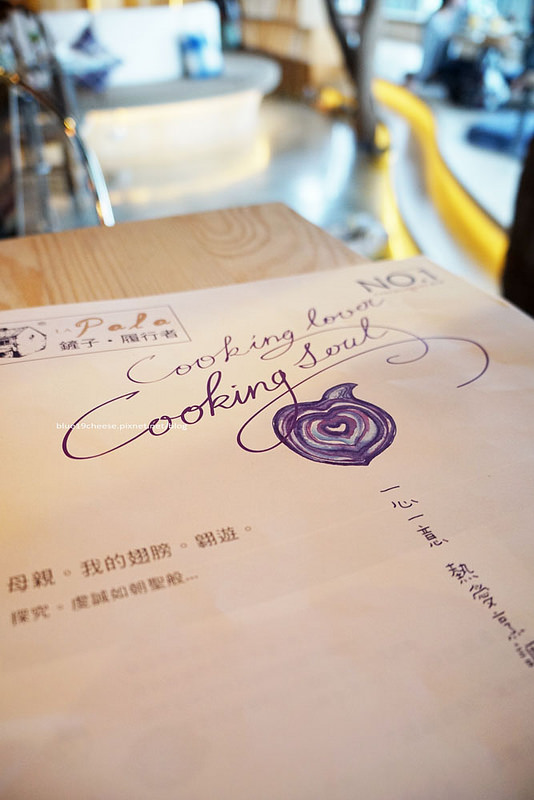 NO.1
La Pala
鏟子·履行者
Cooking lover
Cooking Soul
blue19cheese.pixnet.net/blog
一心一意
母親。我的翅膀。翱遊。
探究。虔誠如朝聖般...